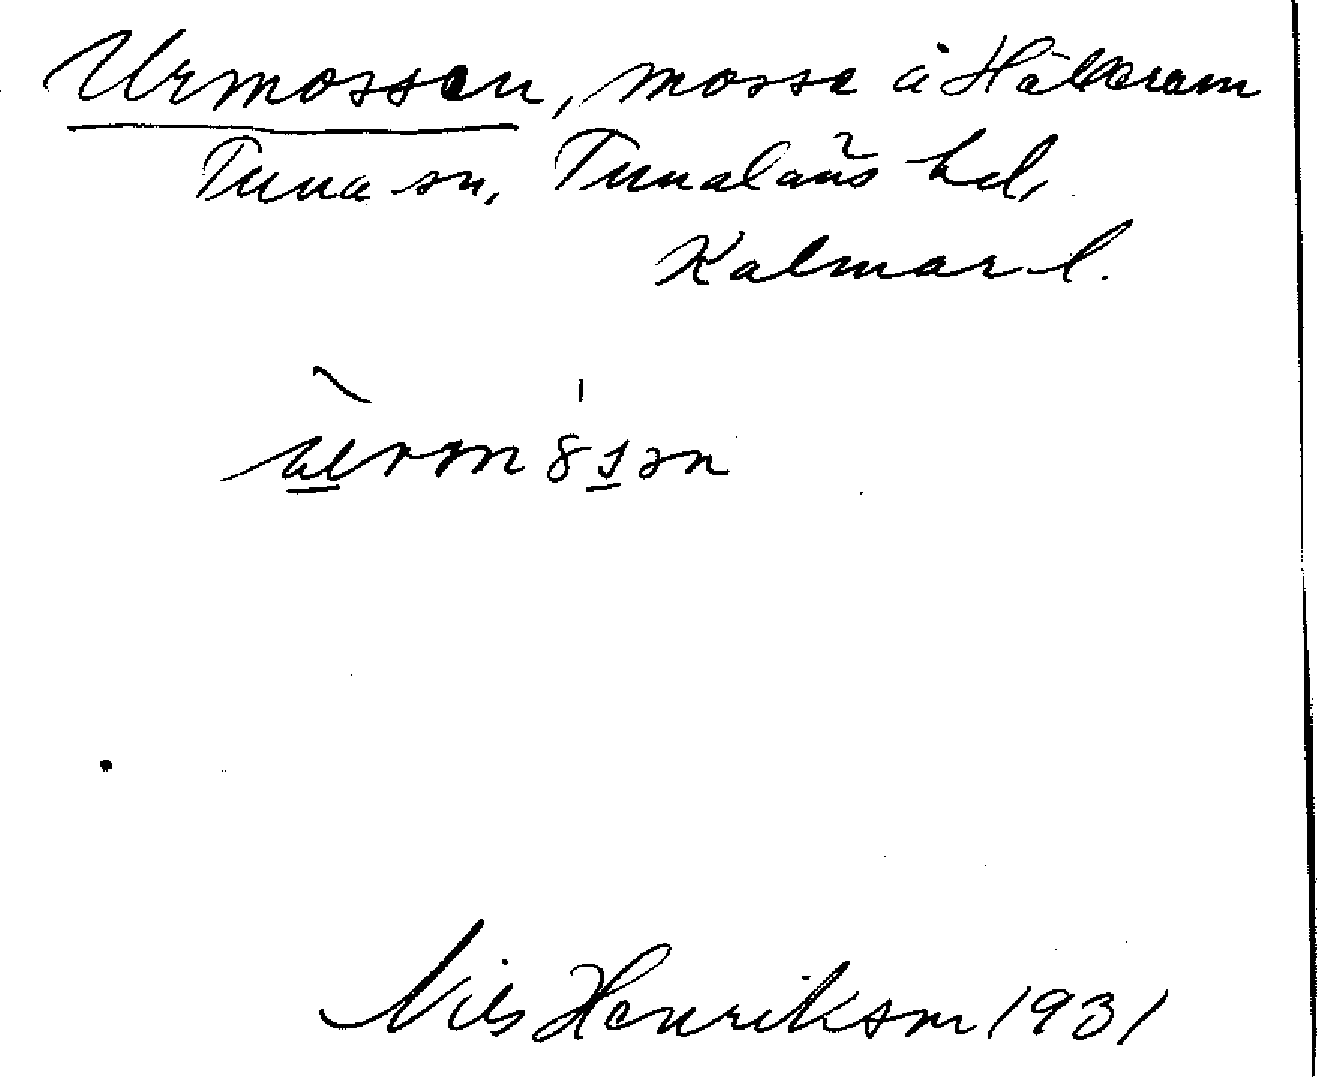 Urmossen, mosse å Hålleram
Tuna sn, Tunaläns hd,
Kalmar l.
Nils Henrikson 1931